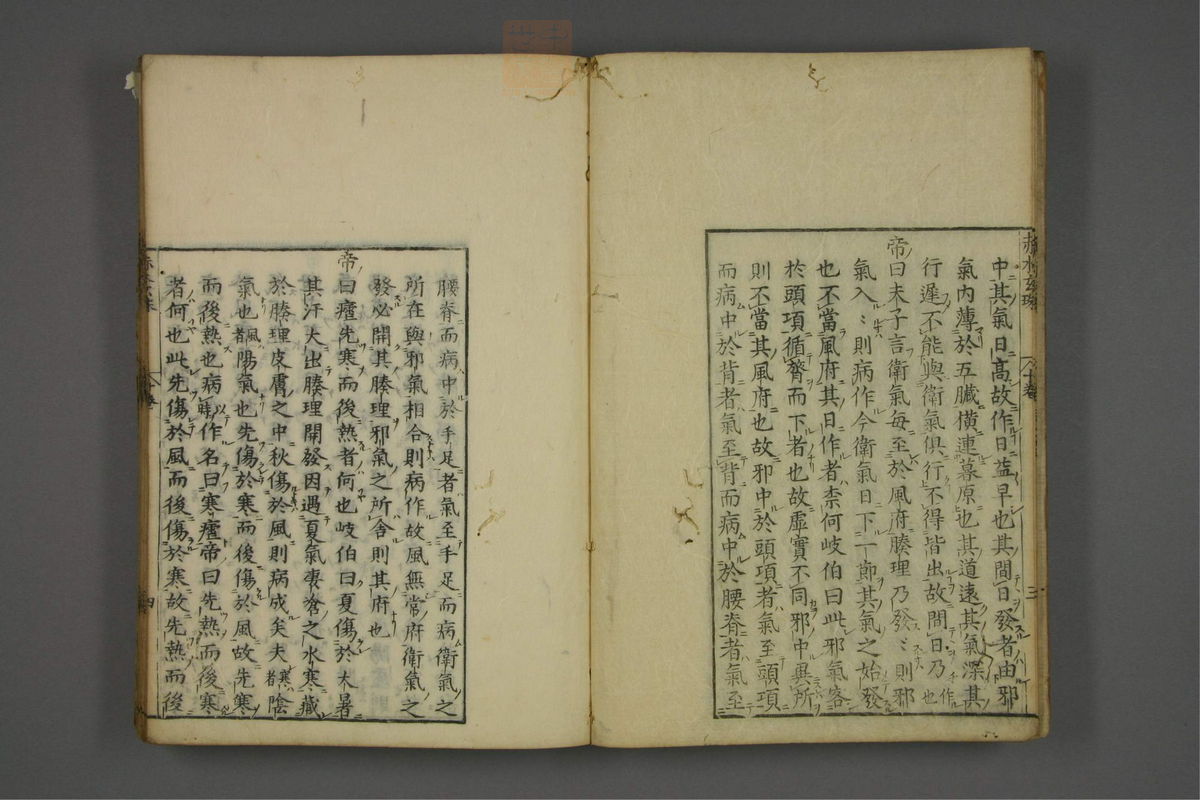 赤水玄珠
十卷
三
中其氣日高故作日益早也其間日發者由邪
氣內薄於五臟橫連募原也其道遠其氣深其
行遲不能與衛氣俱行不得皆出故間日乃作也
帝曰夫子言衛氣每至於風府腠理乃發〻則邪
氣入〻則病作今衛氣日下一節其氣之始發
也不當風府其日作者柰何岐伯曰此邪氣客
於頭項循膂而下者也故虛實不同邪中異所
則不當其風府也故邪中於頭項者氣至頭項
而病中於背者氣至背而病中於腰脊者氣至
腰脊而病中於手足者氣至手足而病衛氣之
所在與邪氣相合則病作故風無常府衛氣之
發必開其腠理邪氣之所舍則其府也
帝曰瘧先寒而後熱者何也岐伯曰夏傷於大暑
其汗大出腠理開發因遇夏氣凄滄之水寒藏
於腠理皮膚之中秋傷於風則病成矣夫寒者陰
氣也風者陽氣也先傷於寒而後傷於風故先寒
而後熱也病以時作名曰寒瘧帝曰先熱而後寒
者何也此先傷於風而後傷於寒故先熱而後
四